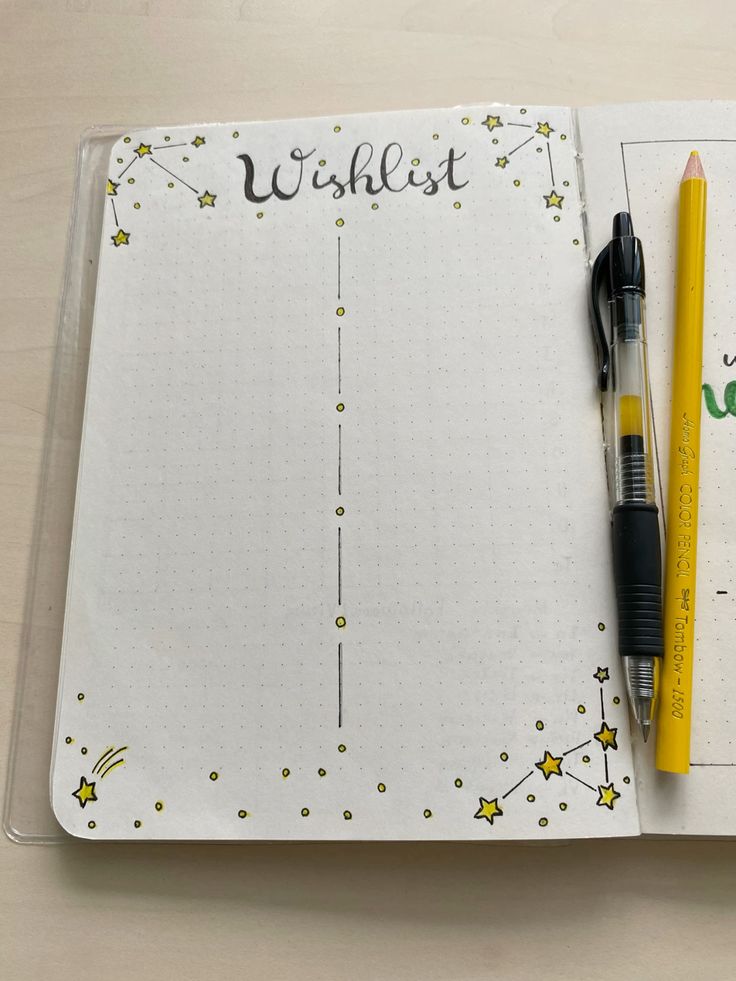 Wishlist
Homo Graph COLOR PENCIL Tombow - 1500